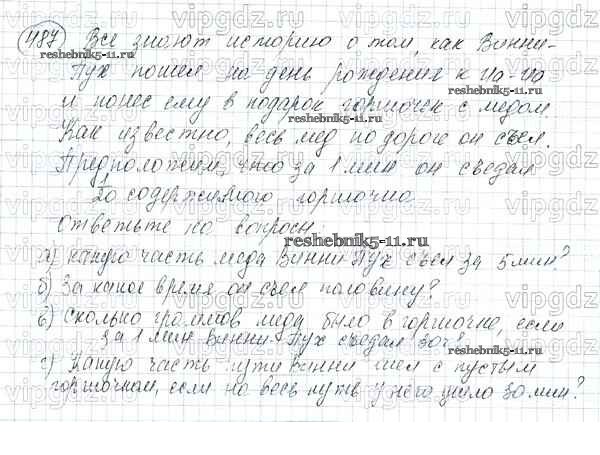 487 Все знают историю о том, как Винни-
Пух пошел на день рождения к Иа-Иа
и понес ему в подарок горшочек с медом.
Как известно, весь мед по дороге он съел.
Предположим, что за 1 мин он съедал
1/20 содержимого горшочка.
Ответьте на вопросы:
а) Какую часть меда Винни-Пух съел за 5 мин?
б) За какое время он съел половину?
в) Сколько граммов меда было в горшочке, если
за 1 мин Винни-Пух съедал 30г?
г) Какую часть пути Винни шел с пустым
горшочком, если на весь путь у него ушло 30 мин?
reshebnik5-11.ru
reshebnik5-11.ru
reshebnik5-11.ru
reshebnik5-11.ru
reshebnik5-11.ru
vipgdz